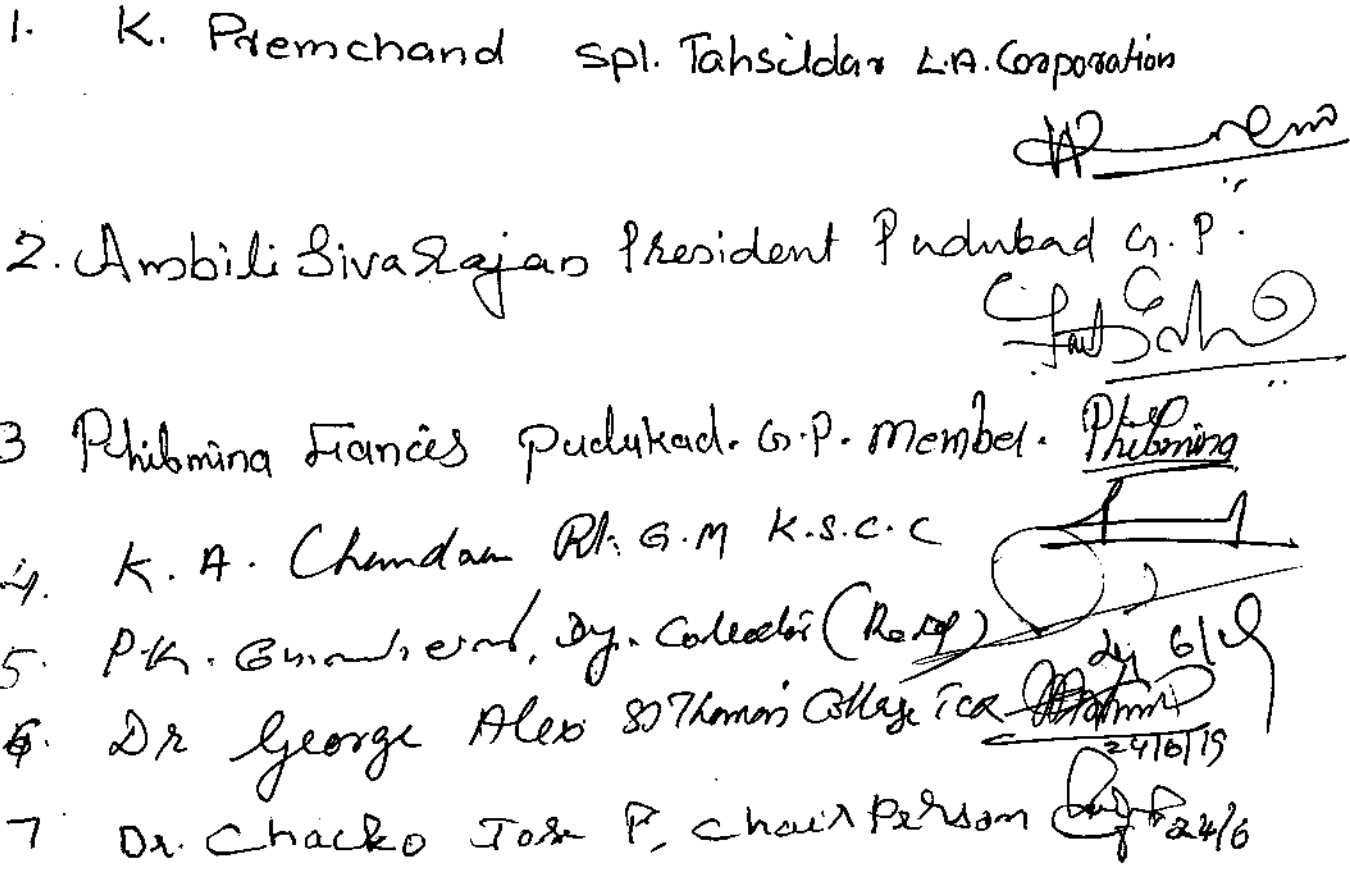 1. K. Premchand Spl. Tahsildar L.A. Corporation
2. Ambili Sivarajan President Pudukad G.P.
3 Philomina Francis Pudukad. G.P. Member. Philomina
4. K. A. Chandran Rt. G.M K.S.C.C
5. P.K. Dy. Collector
24/6/19
6. Dr George Alex St Thomas College TCR
24/6/19
7 Dr. Chacko Jose P, Chairperson 24/6